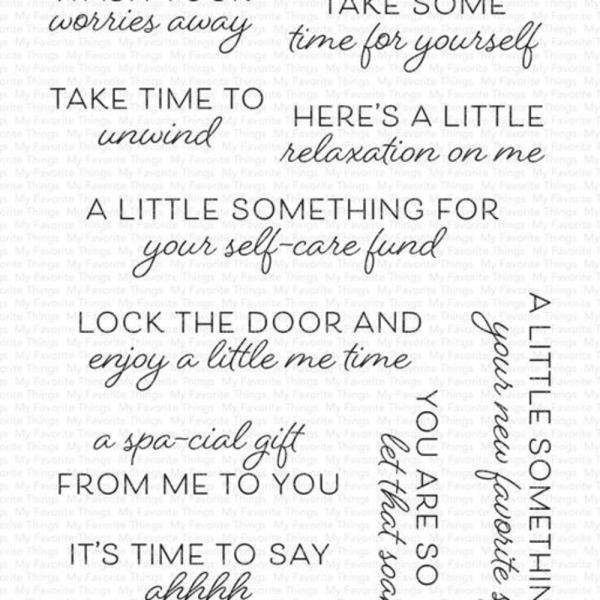 worries away
TAKE SOME
time for yourself
TAKE TIME TO
unwind
HERE'S A LITTLE
relaxation on me
A LITTLE SOMETHING FOR
your self-care fund
LOCK THE DOOR AND
enjoy a little me time
a spa-cial gift
FROM ME TO YOU
IT'S TIME TO SAY
ahhhh
YOU ARE SO
let that soa
A LITTLE SOMETHIN
your new favorite
My Favorite Things